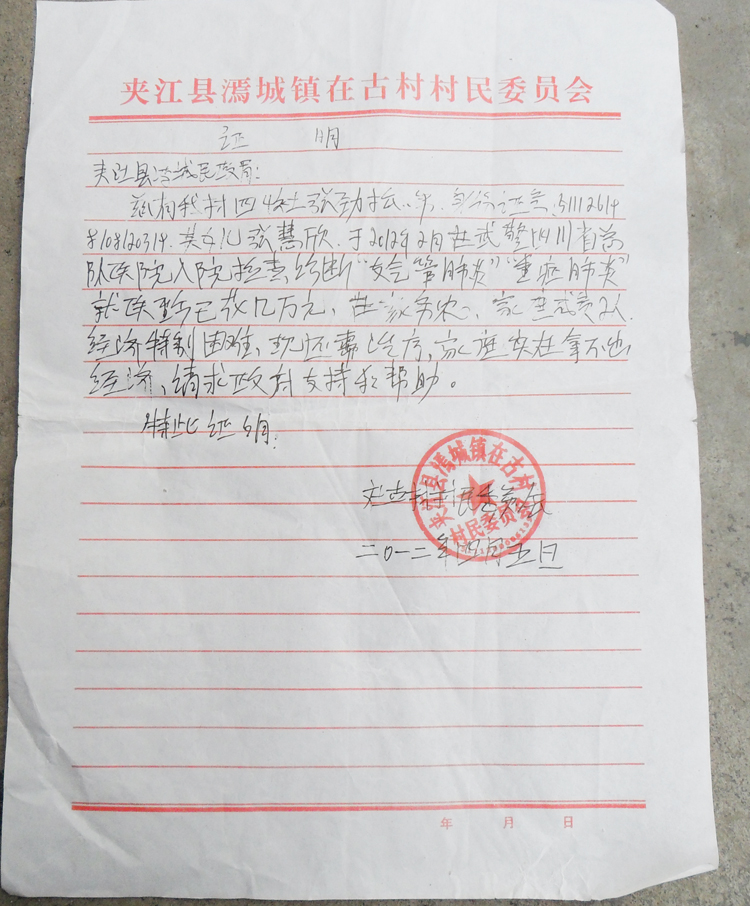 夹江县漹城镇在古村村民委员会
证 明
夹江县漹城民政局:
兹有我村四社张劲松
其女儿张慧欣,于2012年2月在武警四川省总
队医院入院检查,诊断“支气管肺炎”“重症肺炎”
就医至已花几万元,在家务农,家庭
经济特别困难,现还需治疗,家庭实在拿不出
经济,请求政府支持和帮助。
特此证明.
在古村村民委员会
夹江县漹城镇在古村
村民委员会
二〇一二年四月五日
年 月 日